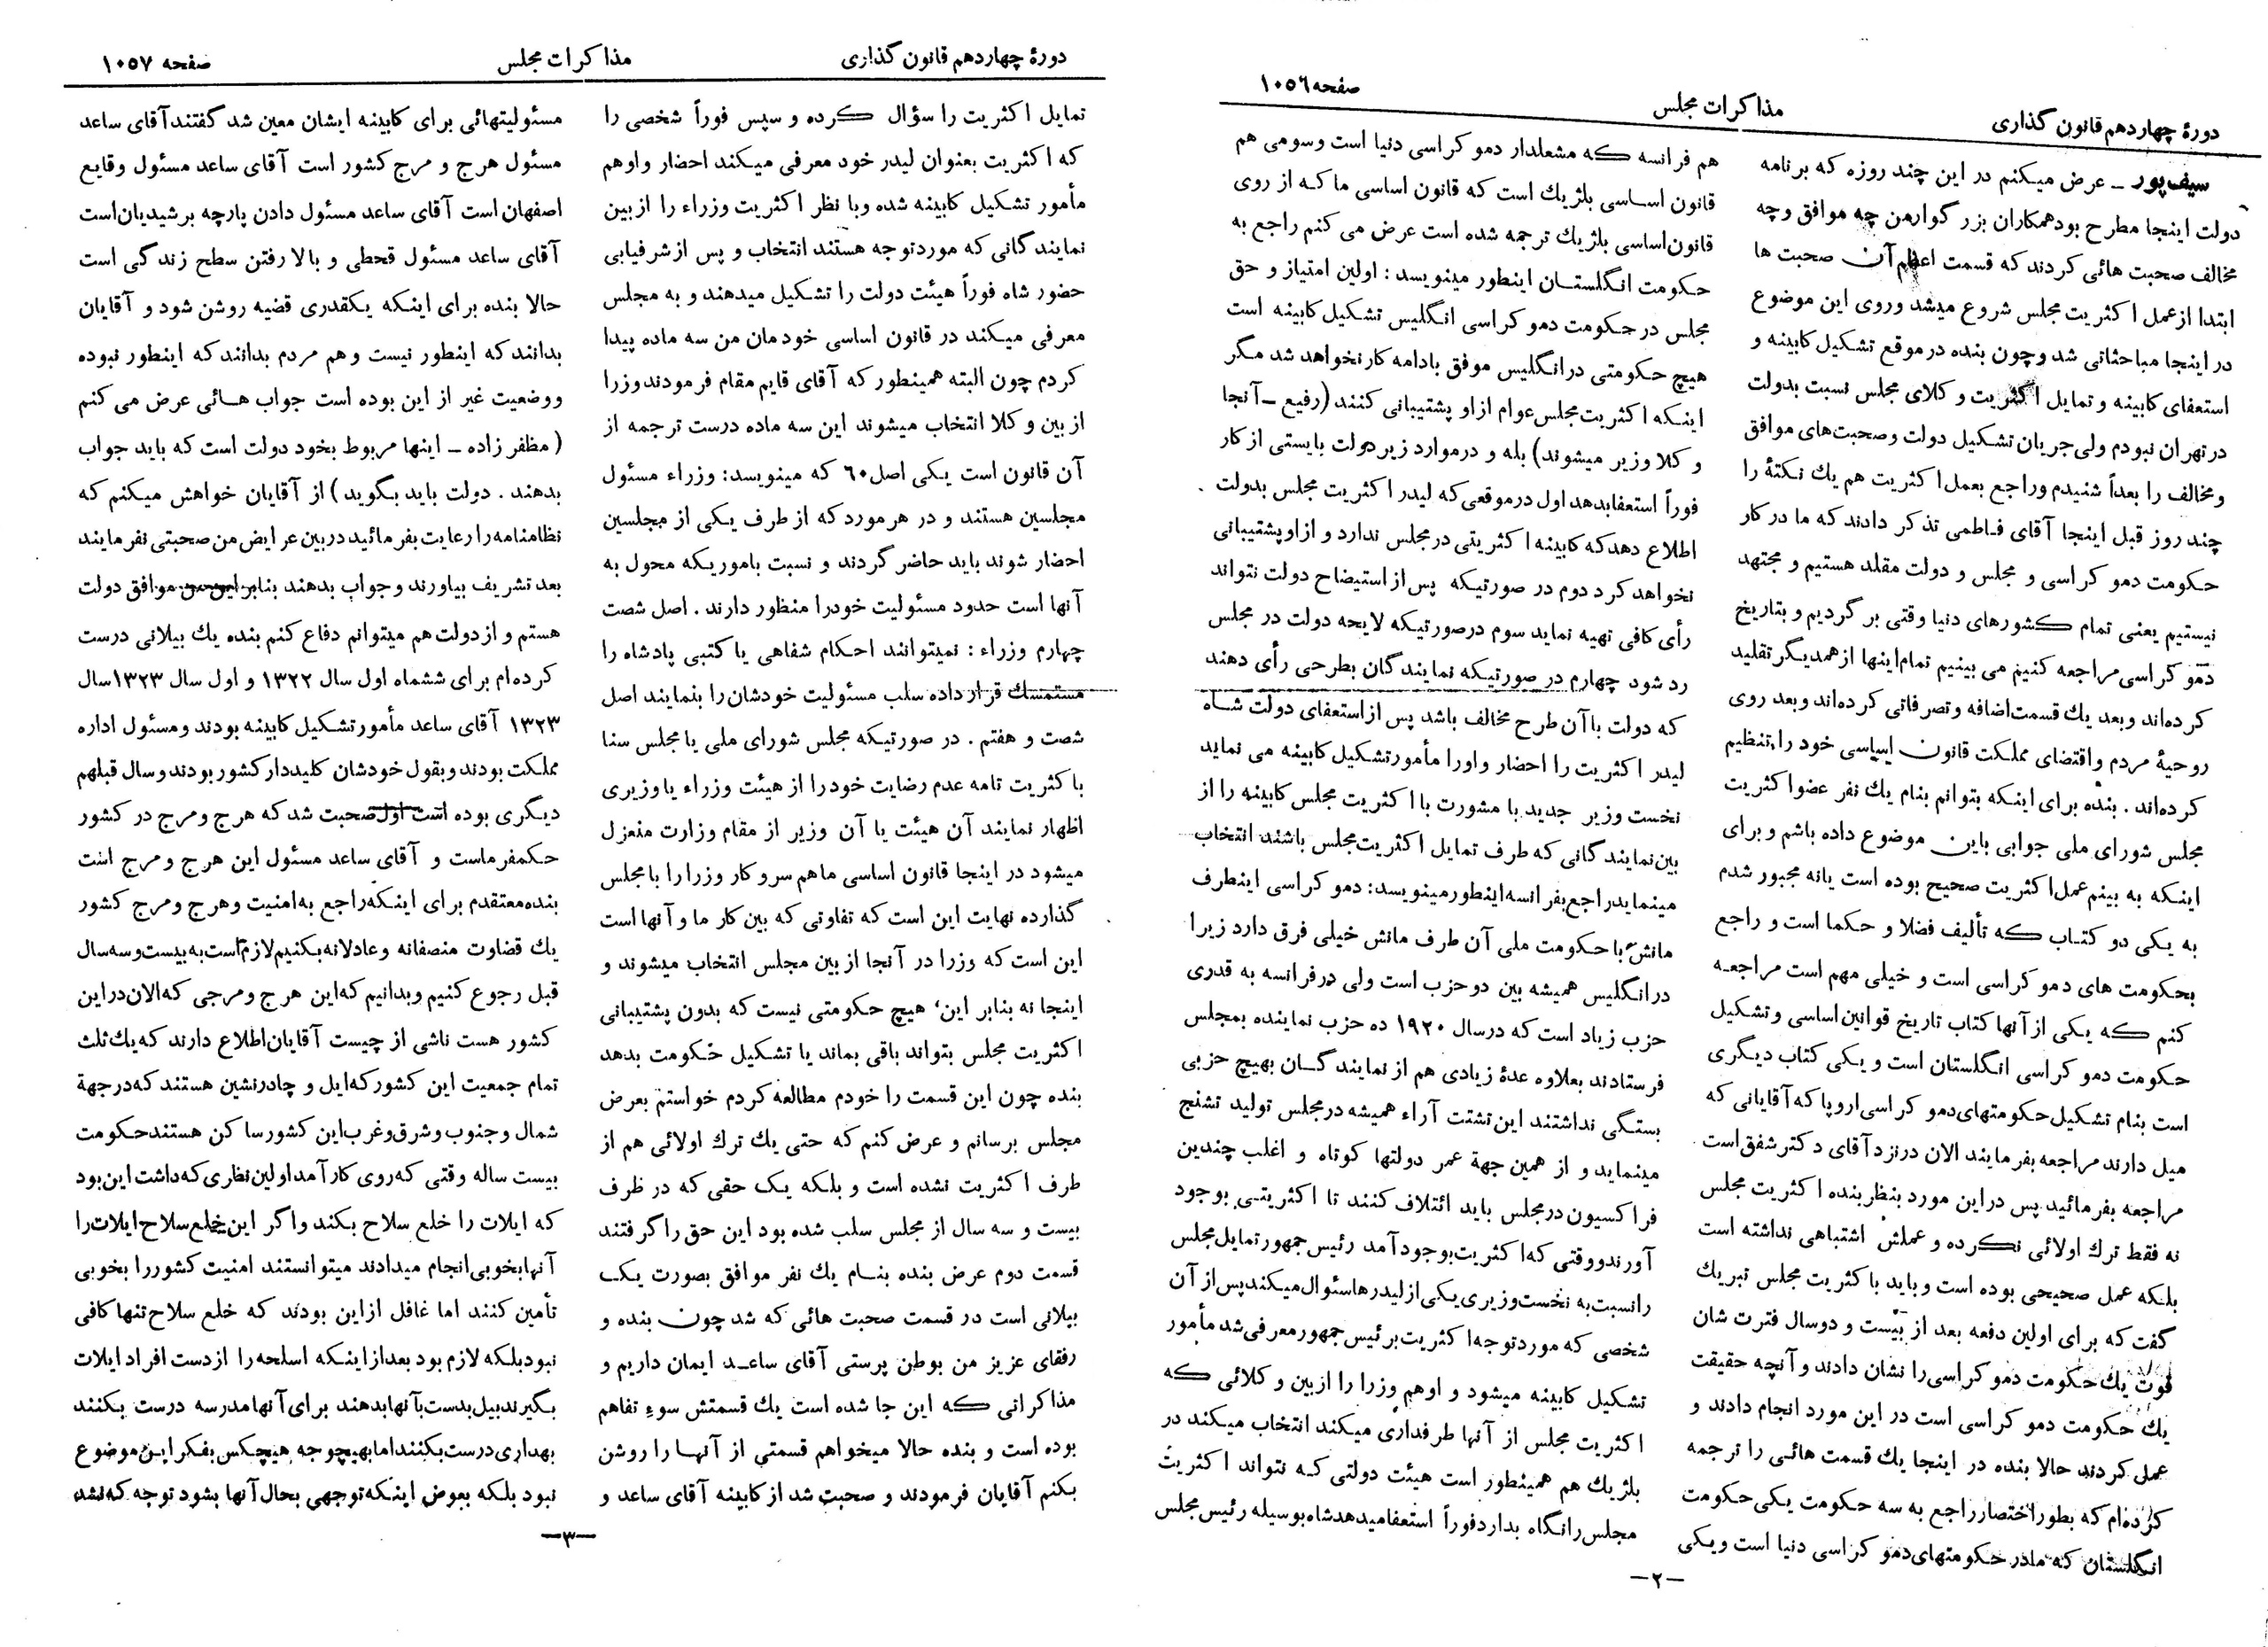 دورهٔ چهاردهم قانون گذاری
مذاکرات مجلس
صفحه ۱۰۵۶
سیف‌پور ـ عرض میکنم در این چند روزه که برنامه
دولت اینجا مطرح بود همکاران بزرگوار من چه موافق وچه
مخالف صحبت هائی کردند که قسمت اعظم آن صحبت ها
ابتدا از عمل اکثریت مجلس شروع میشد وروی این موضوع
در اینجا مباحثاتی شد وچون بنده در موقع تشکیل کابینه و
استعفای کابینه و تمایل اکثریت و کلای مجلس نسبت بدولت
در تهران نبودم ولی جریان تشکیل دولت وصحبت‌های موافق
ومخالف را بعداً شنیدم وراجع بعمل اکثریت هم یك نکتهٔ را
چند روز قبل اینجا آقای فاطمی تذکر دادند که ما در کار
حکومت دموکراسی و مجلس و دولت مقلد هستیم و مجتهد
نیستیم یعنی تمام کشورهای دنیا وقتی بر گردیم و بتاریخ
دموکراسی مراجعه کنیم می بینیم تمام اینها از همدیگر تقلید
کرده‌اند وبعد یك قسمت اضافه وتصرفاتی کرده‌اند وبعد روی
روحیهٔ مردم واقتضای مملکت قانون اساسی خود را تنظیم
کرده‌اند . بنده برای اینکه بتوانم بنام یك نفر عضو اکثریت
مجلس شورای ملی جوابی باین موضوع داده باشم و برای
اینکه به بینم عمل اکثریت صحیح بوده است یانه مجبور شدم
به یکی دو کتاب که تألیف فضلا و حکما است و راجع
بحکومت های دموکراسی است و خیلی مهم است مراجعه
کنم که یکی از آنها کتاب تاریخ قوانین اساسی وتشکیل
حکومت دموکراسی انگلستان است و یکی کتاب دیگری
است بنام تشکیل حکومتهای دموکراسی اروپا که آقایانی که
میل دارند مراجعه بفرمایند الان در نزد آقای دکتر شفق است
مراجعه بفرمائید پس در این مورد بنظر بنده اکثریت مجلس
نه فقط ترك اولائی نکرده و عملش اشتباهی نداشته است
بلکه عمل صحیحی بوده است وباید باکثریت مجلس تبریك
گفت که برای اولین دفعه بعد از بیست و دوسال فترت شان
قوت یك حکومت دموکراسی را نشان دادند و آنچه حقیقت
یك حکومت دموکراسی است در این مورد انجام دادند و
عملی کردند حالا بنده در اینجا یك قسمت هائی را ترجمه
کرده‌ام که بطور اختصار راجع به سه حکومت یکی حکومت
انگلستان که مادر حکومتهای دموکراسی دنیا است ویکی
هم فرانسه که مشعلدار دموکراسی دنیا است وسومی هم
قانون اساسی بلژیك است که قانون اساسی ما که از روی
قانون اساسی بلژیك ترجمه شده است عرض می کنم راجع به
حکومت انگلستان اینطور مینویسد : اولین امتیاز و حق
مجلس در حکومت دموکراسی انگلیس تشکیل کابینه است
هیچ حکومتی در انگلیس موفق بادامه کار نخواهد شد مگر
اینکه اکثریت مجلس عوام از او پشتیبانی کنند (رفیع ـ آنجا
و کلا وزیر میشوند) بله و در موارد زیر دولت بایستی از کار
فوراً استعفا بدهد اول در موقعی که لیدر اکثریت مجلس بدولت
اطلاع دهد که کابینه اکثریتی در مجلس ندارد و از او پشتیبانی
نخواهد کرد دوم در صورتیکه پس از استیضاح دولت نتواند
رأی کافی تهیه نماید سوم در صورتیکه لایحه دولت در مجلس
رد شود چهارم در صورتیکه نمایندگان بطرحی رأی دهند
که دولت با آن طرح مخالف باشد پس از استعفای دولت شاه
لیدر اکثریت را احضار واورا مأمور تشکیل کابینه می نماید
نخست وزیر جدید با مشورت با اکثریت مجلس کابینه را از
بین نمایندگانی که طرف تمایل اکثریت مجلس باشند انتخاب
مینماید راجع بفرانسه اینطور مینویسد : دموکراسی اینطرف
مانش با حکومت ملی آن طرف مانش خیلی فرق دارد زیرا
در انگلیس همیشه بین دو حزب است ولی در فرانسه به قدری
حزب زیاد است که در سال ۱۹۲۰ ده حزب نماینده بمجلس
فرستادند بعلاوه عدهٔ زیادی هم از نمایندگان بهیچ حزبی
بستگی نداشتند این تشتت آراء همیشه در مجلس تولید تشنج
مینماید و از همین جهة عمر دولتها کوتاه و اغلب چندین
فراکسیون در مجلس باید ائتلاف کنند تا اکثریتی بوجود
آورند ووقتی که اکثریت بوجود آمد رئیس جمهور تمایل مجلس
را نسبت به نخست وزیری یکی از لیدرها سئوال میکند پس از آن
شخصی که مورد توجه اکثریت برئیس جمهور معرفی شد مأمور
تشکیل کابینه میشود و اوهم وزرا را از بین و کلائی که
اکثریت مجلس از آنها طرفداری میکند انتخاب میکند در
بلژیك هم همینطور است هیئت دولتی که نتواند اکثریت
مجلس را نگاه بدارد فوراً استعفا میدهد شاه بوسیله رئیس مجلس
ـ۲ـ
دورهٔ چهاردهم قانون گذاری
مذاکرات مجلس
صفحه ۱۰۵۷
تمایل اکثریت را سؤال کرده و سپس فوراً شخصی را
که اکثریت بعنوان لیدر خود معرفی میکند احضار واوهم
مأمور تشکیل کابینه شده وبا نظر اکثریت وزراء را از بین
نمایندگانی که مورد توجه هستند انتخاب و پس از شرفیابی
حضور شاه فوراً هیئت دولت را تشکیل میدهند و به مجلس
معرفی میکند در قانون اساسی خودمان من سه ماده پیدا
کردم چون البته همینطور که آقای قایم مقام فرمودند وزرا
از بین و کلا انتخاب میشوند این سه ماده درست ترجمه از
آن قانون است یکی اصل ۶۰ که مینویسد : وزراء مسئول
مجلسین هستند و در هر مورد که از طرف یکی از مجلسین
احضار شوند باید حاضر گردند و نسبت باموریکه محول به
آنها است حدود مسئولیت خودرا منظور دارند . اصل شصت
چهارم وزراء : نمیتوانند احکام شفاهی یا کتبی پادشاه را
مستمسك قرار داده سلب مسئولیت خودشان را بنمایند اصل
شصت و هفتم . در صورتیکه مجلس شورای ملی یا مجلس سنا
باکثریت تامه عدم رضایت خودرا از هیئت وزراء یا وزیری
اظهار نمایند آن هیئت یا آن وزیر از مقام وزارت منعزل
میشود در اینجا قانون اساسی ماهم سروکار وزرا را با مجلس
گذارده نهایت این است که تفاوتی که بین کار ما و آنها است
این است که وزرا در آنجا از بین مجلس انتخاب میشوند و
اینجا نه بنابر این، هیچ حکومتی نیست که بدون پشتیبانی
اکثریت مجلس بتواند باقی بماند یا تشکیل حکومت بدهد
بنده چون این قسمت را خودم مطالعه کردم خواستم بعرض
مجلس برسانم و عرض کنم که حتی یك ترك اولائی هم از
طرف اکثریت نشده است و بلکه یك حقی که در ظرف
بیست و سه سال از مجلس سلب شده بود این حق را گرفتند
قسمت دوم عرض بنده بنام یك نفر موافق بصورت یك
بیلانی است در قسمت صحبت هائی که شد چون بنده و
رفقای عزیز من بوطن پرستی آقای ساعد ایمان داریم و
مذاکراتی که این جا شده است یك قسمتش سوء تفاهم
بوده است و بنده حالا میخواهم قسمتی از آنها را روشن
بکنم آقایان فرمودند و صحبت شد از کابینه آقای ساعد و
مسئولیتهائی برای کابینه ایشان معین شد گفتند آقای ساعد
مسئول هرج و مرج کشور است آقای ساعد مسئول وقایع
اصفهان است آقای ساعد مسئول دادن پارچه برشیدیان است
آقای ساعد مسئول قحطی و بالا رفتن سطح زندگی است
حالا بنده برای اینکه یکقدری قضیه روشن شود و آقایان
بدانند که اینطور نیست و هم مردم بدانند که اینطور نبوده
ووضعیت غیر از این بوده است جواب هائی عرض می کنم
( مظفر زاده ـ اینها مربوط بخود دولت است که باید جواب
بدهند . دولت باید بگوید ) از آقایان خواهش میکنم که
نظامنامه را رعایت بفرمائید در بین عرایض من صحبتی نفرمایند
بعد تشریف بیاورند و جواب بدهند بنابر این من موافق دولت
هستم و از دولت هم میتوانم دفاع کنم بنده یك بیلانی درست
کرده‌ام برای ششماه اول سال ۱۳۲۲ و اول سال ۱۳۲۳ سال
۱۳۲۳ آقای ساعد مأمور تشکیل کابینه بودند ومسئول اداره
مملکت بودند وبقول خودشان کلیددار کشور بودند وسال قبلهم
دیگری بوده است اول صحبت شد که هرج ومرج در کشور
حکمفرماست و آقای ساعد مسئول این هرج و مرج است
بنده معتقدم برای اینکه راجع به امنیت وهرج ومرج کشور
یك قضاوت منصفانه وعادلانه بکنیم لازم است به بیست وسه سال
قبل رجوع کنیم وبدانیم که این هرج ومرجی که الان در این
کشور هست ناشی از چیست آقایان اطلاع دارند که یك ثلث
تمام جمعیت این کشور که ایل و چادرنشین هستند که در جهة
شمال وجنوب وشرق وغرب این کشور ساکن هستند حکومت
بیست ساله وقتی که روی کار آمد اولین نظری که داشت این بود
که ایلات را خلع سلاح بکند واگر این خلع سلاح ایلات را
آنها بخوبی انجام میدادند میتوانستند امنیت کشور را بخوبی
تأمین کنند اما غافل از این بودند که خلع سلاح تنها کافی
نبود بلکه لازم بود بعد از اینکه اسلحه را از دست افراد ایلات
بگیرند بیل بدست بآنها بدهند برای آنها مدرسه درست بکنند
بهداری درست بکنند اما بهیچوجه هیچکس بفکر این موضوع
نبود بلکه بعوض اینکه توجهی بحال آنها بشود توجه که نشد
ـ۳ـ